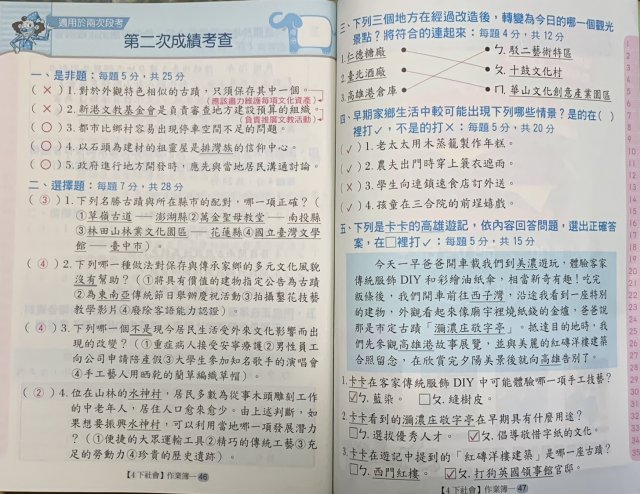 適用於兩次段考
第二次成績考查
一、是非題：每題5分，共25分
(×)1.對於外觀特色相似的古蹟，只須保存其中一個。
(應該盡力維護每項文化資產)
(×)2.新港文教基金會是負責審查地方建設預算的組織。
(負責推廣文教活動)
(○)3.都市比鄉村容易出現停車空間不足的問題。
(○)4.以石頭為建材的祖靈屋是排灣族的信仰中心。
(○)5.政府進行地方開發時，應先與當地居民溝通討論。
二、選擇題：每題7分，共28分
(③)1.下列名勝古蹟與所在縣市的配對，哪一項正確？(
①草嶺古道──澎湖縣②萬金聖母教堂──南投縣
③林田山林業文化園區──花蓮縣④國立臺灣文學
館──臺中市)。
(④)2.下列哪一種做法對保存與傳承家鄉的多元文化風貌
沒有幫助？(①將具有價值的建物指定公告為古蹟
②為東南亞傳統節日舉辦慶祝活動③拍攝藍花技藝
教學影片④廢除客語能力認證)。
(④)3.下列哪一個不是現今居民生活受外來文化影響而出
現的改變？(①重症病人接受安寧療護②男性員工
向公司申請陪產假③大學生參加知名歌手的演唱會
④手工藝人用晒乾的藺草編織草帽)。
(②)4.位在山林的水神村，居民多數為從事木頭雕刻工作
的中老年人，居住人口愈來愈少。由上述判斷，如
果想要振興水神村，可以利用當地哪一項發展潛力
？(①便捷的大眾運輸工具②精巧的傳統工藝③充
足的勞動力④珍貴的歷史遺跡)。
【4下社會】作業簿─46
三、下列三個地方在經過改造後，轉變為今日的哪一個觀光
景點？將符合的連起來：每題4分，共12分
1.仁德糖廠
ㄅ.駁二藝術特區
2.臺北酒廠
ㄆ.十鼓文化村
3.高雄港倉庫
ㄇ.華山文化創意產業園區
四、早期家鄉生活中較可能出現下列哪些情景？是的在( )
裡打✓，不是的打×：每題5分，共20分
(✓)1.老太太用木蒸籠製作年糕。
(✓)2.農夫出門時穿上簑衣遮雨。
(×)3.學生向連鎖速食店訂外送。
(✓)4.孩童在三合院的前埕嬉戲。
五、下列是卡卡的高雄遊記，依內容回答問題，選出正確答
案，在□裡打✓：每題5分，共15分
今天一早爸爸開車載我們到美濃遊玩，體驗客家
傳統服飾DIY和彩繪油紙傘，相當新奇有趣！吃完
粄條後，我們開車前往西子灣，沿途我看到一座特別
的建物，外觀看起來像廟宇裡燒紙錢的金爐，爸爸說
那是市定古蹟「瀰濃庄敬字亭」。抵達目的地時，我
們先參觀高雄港故事展覽，並與美麗的紅磚洋樓建築
合照留念，在欣賞完夕陽美景後就向高雄告別了。
1.卡卡在客家傳統服飾DIY中可能體驗哪一項手工技藝？
☑ㄅ.藍染。□ㄆ.縫樹皮。
2.卡卡看到的瀰濃庄敬字亭在早期具有什麼用途？
□ㄅ.選拔優秀人才。☑ㄆ.倡導敬惜字紙的文化。
3.卡卡在遊記中提到的「紅磚洋樓建築」是哪一座古蹟？
□ㄅ.西門紅樓。☑ㄆ.打狗英國領事館官邸。
【4下社會】作業簿─47